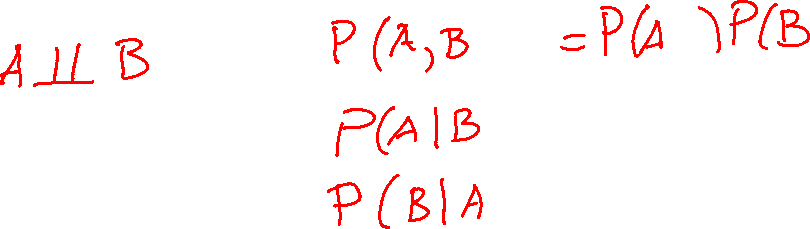 A ⫫ B P(A,B =P(A )P(B
P(A|B
P(B|A